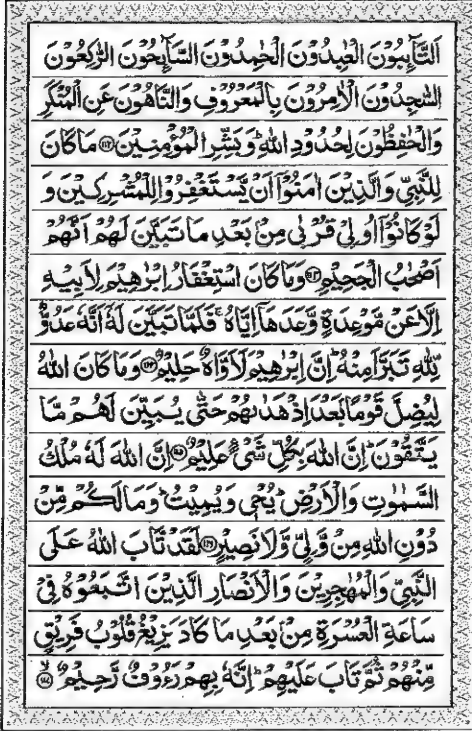 اَلتَّآئِبُوْنَ الْعٰبِدُوْنَ الْحٰمِدُوْنَ السَّآئِحُوْنَ الرّٰكِعُوْنَ
السّٰجِدُوْنَ الْاٰمِرُوْنَ بِالْمَعْرُوْفِ وَالنَّاهُوْنَ عَنِ الْمُنْكَرِ
وَالْحٰفِظُوْنَ لِحُدُوْدِ اللّٰهِ ؕ وَبَشِّرِ الْمُؤْمِنِيْنَ ﴿۱۱۲﴾ مَا كَانَ
لِلنَّبِيِّ وَالَّذِيْنَ اٰمَنُوْۤا اَنْ يَّسْتَغْفِرُوْا لِلْمُشْرِكِيْنَ وَ
لَوْ كَانُوْۤا اُولِيْ قُرْبٰى مِنْۢ بَعْدِ مَا تَبَيَّنَ لَهُمْ اَنَّهُمْ
اَصْحٰبُ الْجَحِيْمِ ﴿۱۱۳﴾ وَمَا كَانَ اسْتِغْفَارُ اِبْرٰهِيْمَ لِاَبِيْهِ
اِلَّا عَنْ مَّوْعِدَةٍ وَّعَدَهَاۤ اِيَّاهُ ۚ فَلَمَّا تَبَيَّنَ لَهٗۤ اَنَّهٗ عَدُوٌّ
لِّلّٰهِ تَبَرَّاَ مِنْهُ ؕ اِنَّ اِبْرٰهِيْمَ لَاَوَّاهٌ حَلِيْمٌ ﴿۱۱۴﴾ وَمَا كَانَ اللّٰهُ
لِيُضِلَّ قَوْمًۢا بَعْدَ اِذْ هَدٰىهُمْ حَتّٰى يُبَيِّنَ لَهُمْ مَّا
يَتَّقُوْنَ ؕ اِنَّ اللّٰهَ بِكُلِّ شَيْءٍ عَلِيْمٌ ﴿۱۱۵﴾ اِنَّ اللّٰهَ لَهٗ مُلْكُ
السَّمٰوٰتِ وَالْاَرْضِ ؕ يُحْيٖ وَيُمِيْتُ ؕ وَمَا لَكُمْ مِّنْ
دُوْنِ اللّٰهِ مِنْ وَّلِيٍّ وَّلَا نَصِيْرٍ ﴿۱۱۶﴾ لَقَدْ تَّابَ اللّٰهُ عَلَى
النَّبِيِّ وَالْمُهٰجِرِيْنَ وَالْاَنْصَارِ الَّذِيْنَ اتَّبَعُوْهُ فِيْ
سَاعَةِ الْعُسْرَةِ مِنْۢ بَعْدِ مَا كَادَ يَزِيْغُ قُلُوْبُ فَرِيْقٍ
مِّنْهُمْ ثُمَّ تَابَ عَلَيْهِمْ ؕ اِنَّهٗ بِهِمْ رَءُوْفٌ رَّحِيْمٌ ﴿۱۱۷﴾